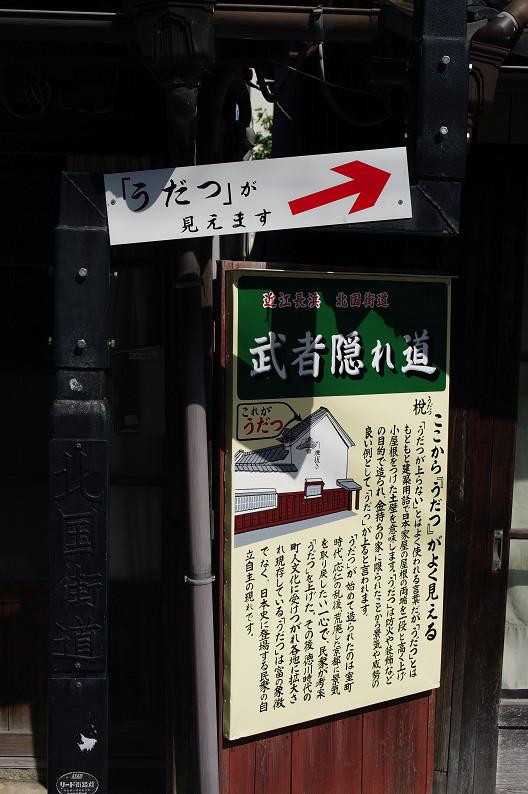 「うだつ」が
見えます
近江長浜 北国街道
武者隠れ道
これが
うだつ
ここから『うだつ』がよく見える
うだつ
梲
「うだつが上らない」とはよく使われる言葉だが「うだつ」とは
もともと建築用語で日本家屋の屋根の両端を一段と高く上げ
小屋根をつけた土壁を意味します。「うだつ」は防火や装飾など
の目的で造られ、金持ちの家に限られたことから景気や威勢の
良い例として「うだつ」が上ると言われます。
「うだつ」が始めて造られたのは室町
時代、応仁の乱後、荒廃した京都に景気
を取り戻したい一心で、民家が考案
「うだつ」を上げた。その後徳川時代の
町人文化に受けつがれ各地に拡大さ
れ現存している「うだつ」は富の象徴
でなく、日本史に登場する民家の自
立自主の現れです。
北国街道
リード街路灯